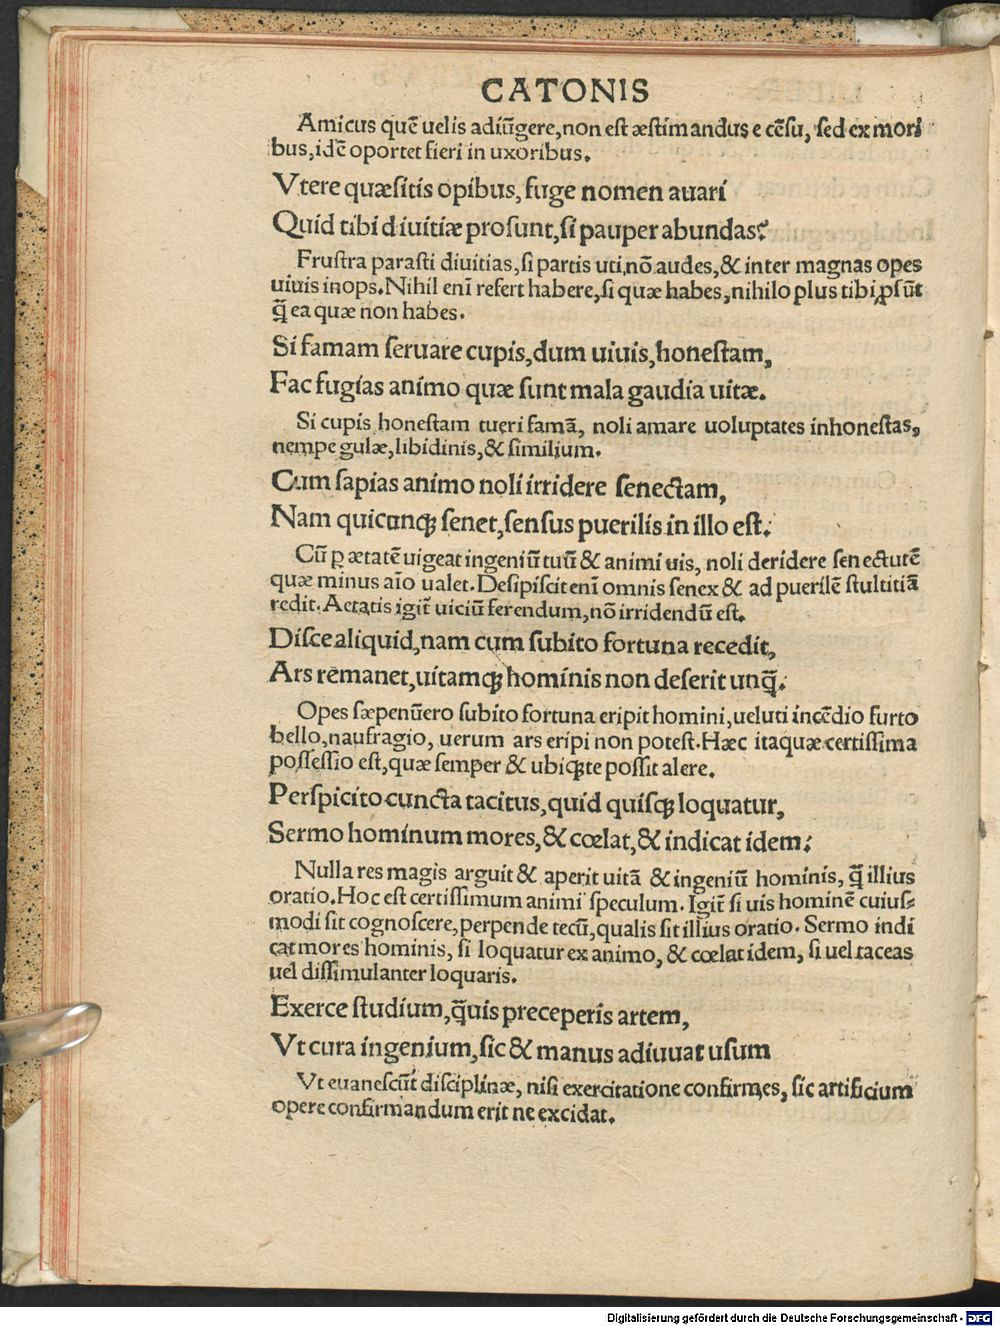 CATONIS
Amicus quē uelis adiūgere, non est æstimandus e cēsu, sed ex mori
bus, idē oportet fieri in uxoribus.
Vtere quæsitis opibus, fuge nomen auari
Quid tibi diuitiæ prosunt, si pauper abundas?
Frustra parasti diuitias, si partis uti nō audes, & inter magnas opes
uiuis inops. Nihil eni refert habere, si quæ habes, nihilo plus tibi ꝓsūt
q̄ ea quæ non habes.
Si famam seruare cupis, dum uiuis, honestam,
Fac fugias animo quæ sunt mala gaudia uitæ.
Si cupis honestam tueri famā, noli amare uoluptates inhonestas,
nempe gulæ, libidinis, & similium.
Cum sapias animo noli irridere senectam,
Nam quicunqꝫ senet, sensus puerilis in illo est.
Cū ꝑ ætatē uigeat ingeniū tuū & animi uis, noli deridere senectutē
quæ minus aīo ualet. Desipiscit enī omnis senex & ad puerilē stultitiā
redit. Aetatis igit̄ uiciū ferendum, nō irridendū est.
Disce aliquid, nam cum subito fortuna recedit,
Ars remanet, uitamqꝫ hominis non deserit unq̄.
Opes sæpenūero subito fortuna eripit homini, ueluti incēdio furto
bello, naufragio, uerum ars eripi non potest. Hæc itaquæ certissima
possessio est, quæ semper & ubiqꝫ te possit alere.
Perspicito cuncta tacitus, quid quisqꝫ loquatur,
Sermo hominum mores, & cœlat, & indicat idem.
Nulla res magis arguit & aperit uitā & ingeniū hominis, q̄ illius
oratio. Hoc est certissimum animi speculum. Igit̄ si uis hominē cuius⸗
modi sit cognoscere, perpende tecū, qualis sit illius oratio. Sermo indi
cat mores hominis, si loquatur ex animo, & cœlat idem, si uel taceas
uel dissimulanter loquaris.
Exerce studium, q̄uis preceperis artem,
Vt cura ingenium, sic & manus adiuuat usum
Vt euanescūt disciplinæ, nisi exercitatione confirmes, sic artificium
opere confirmandum erit ne excidat.
Digitalisierung gefördert durch die Deutsche Forschungsgemeinschaft - DFG